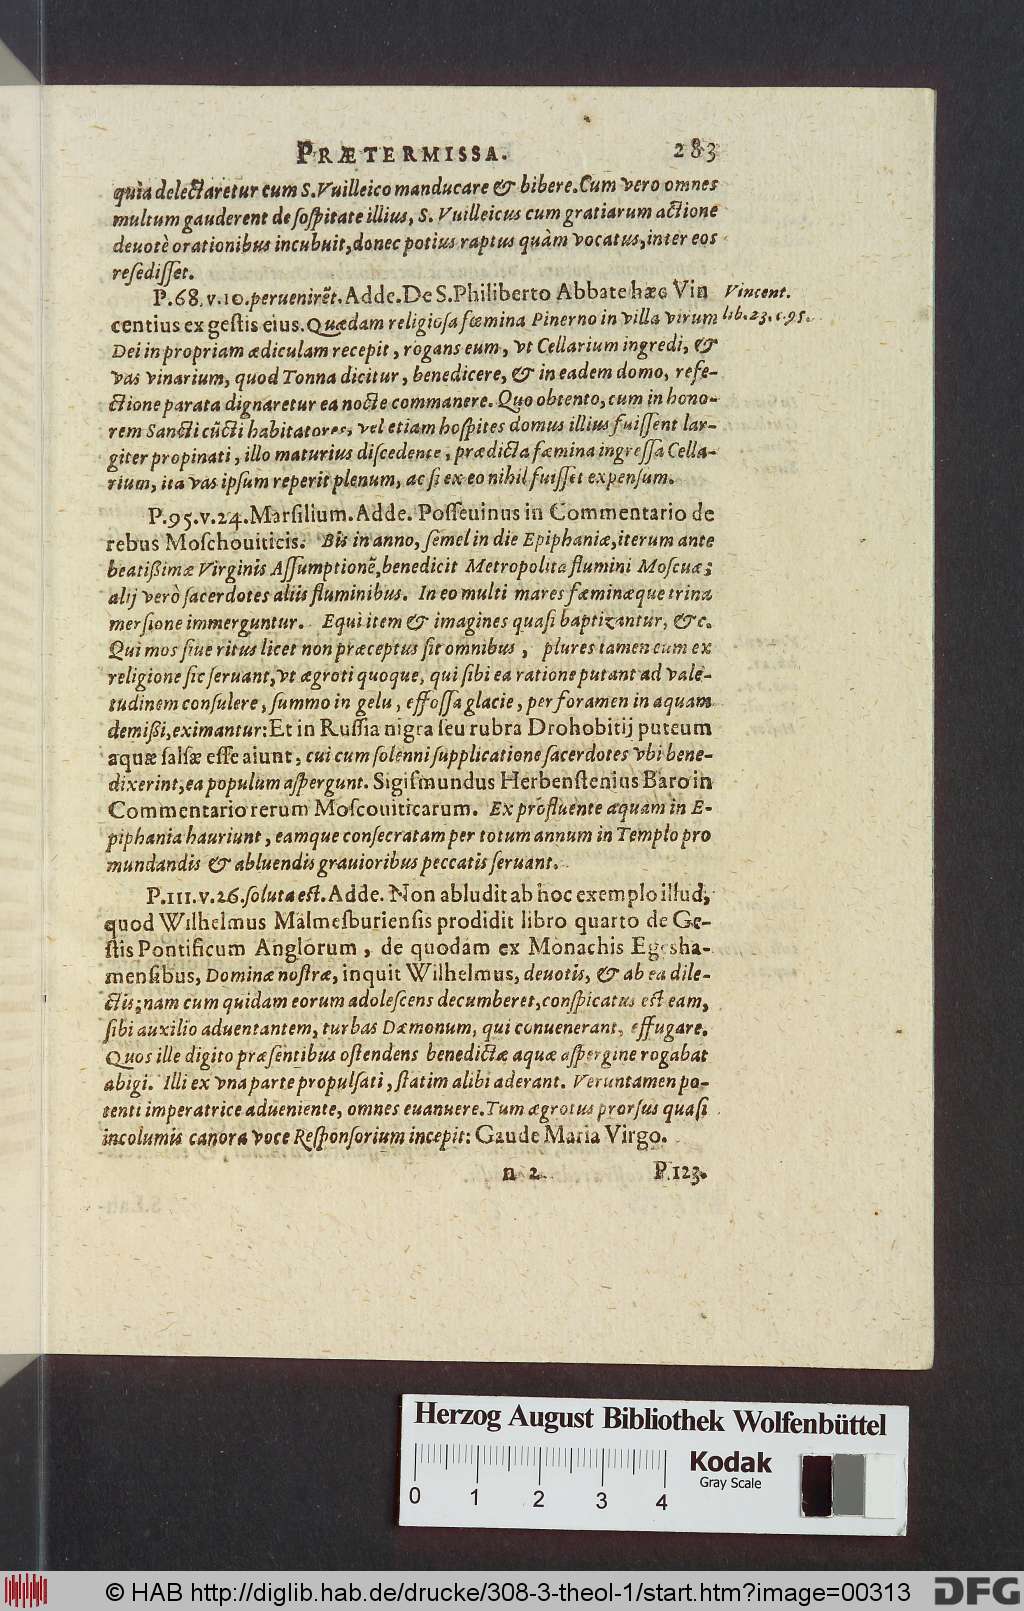 PRÆTERMISSA. 283
quia delectaretur cum S. Vuilleico manducare & bibere. Cum vero omnes
multum gauderent de sospitate illius, S. Vuilleicus cum gratiarum actione
deuotè orationibus incubuit, donec potius raptus quàm vocatus, inter eos
resedisset.
P. 68. v. 10. perueniret̃. Adde. De S. Philiberto Abbate hæc Vin
Vincent.
centius ex gestis eius. Quædam religiosa fœmina Pinerno in villa virum
lib. 23. c. 95.
Dei in propriam ædiculam recepit, rogans eum, vt Cellarium ingredi, &
vas vinarium, quod Tonna dicitur, benedicere, & in eadem domo, refe-
ctione parata dignaretur ea nocte commanere. Quo obtento, cum in hono-
rem Sancti cũcti habitatores, vel etiam hospites domus illius fuissent lar-
giter propinati, illo maturius discedente, prædicta fæmina ingressa Cella-
rium, ita vas ipsum reperit plenum, ac si ex eo nihil fuisset expensum.
P. 95. v. 24. Marsilium. Adde. Posseuinus in Commentario de
rebus Moschouiticis. Bis in anno, semel in die Epiphaniæ, iterum ante
beatißimæ Virginis Assumptionẽ, benedicit Metropolita flumini Moscuæ;
alij verò sacerdotes aliis fluminibus. In eo multi mares fæminæque trina
mersione immerguntur. Equi item & imagines quasi baptizantur, &c.
Qui mos siue ritus licet non præceptus sit omnibus, plures tamen cum ex
religione sic seruant, vt ægroti quoque, qui sibi ea ratione putant ad vale-
tudinem consulere, summo in gelu, effossa glacie, per foramen in aquam
demißi, eximantur: Et in Russia nigra seu rubra Drohobitij puteum
aquæ salsæ esse aiunt, cui cum solenni supplicatione sacerdotes vbi bene-
dixerint, ea populum aspergunt. Sigismundus Herbenstenius Baro in
Commentario rerum Moscouiticarum. Ex profluente aquam in E-
piphania hauriunt, eamque consecratam per totum annum in Templo pro
mundandis & abluendis grauioribus peccatis seruant.
P. 111. v. 26. soluta est. Adde. Non abludit ab hoc exemplo illud,
quod Wilhelmus Malmesburiensis prodidit libro quarto de Ge-
stis Pontificum Anglorum, de quodam ex Monachis Egesha-
mensibus, Dominæ nostræ, inquit Wilhelmus, deuotis, & ab ea dile-
ctis; nam cum quidam eorum adolescens decumberet, conspicatus est eam,
sibi auxilio aduentantem, turbas Dæmonum, qui conuenerant, effugare.
Quos ille digito præsentibus ostendens benedictæ aquæ aspergine rogabat
abigi. Illi ex vna parte propulsati, statim alibi aderant. Veruntamen po-
tenti imperatrice adueniente, omnes euanuere. Tum ægrotus prorsus quasi
incolumis canora voce Responsorium incepit: Gaude Maria Virgo.
n 2 P. 123.
Herzog August Bibliothek Wolfenbüttel
0 1 2 3 4
Kodak
Gray Scale
© HAB http://diglib.hab.de/drucke/308-3-theol-1/start.htm?image=00313
DFG